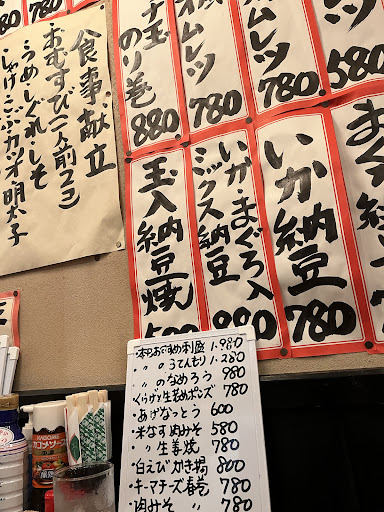 食事献立
おむすび(一人前2コ)
・うめ・しぐれ・しそ
・しゃけ・こぶ・カツオ・明太子
のり巻
880
オムレツ
780
オムレツ
780
580
玉入納豆焼
いか・まぐろ入
ミックス納豆
880
いか納豆
780
・本日おすすめ刺盛 1.980
・〃 3てんもり 1.280
・〃 のなめろう 980
・くらげ生若めポンズ 780
・あげなっとう 600
・米なす肉みそ 580
・〃 生姜焼 780
・白えびかき揚 800
・キーマチーズ春巻 780
・肉みそ 〃 780
KAGOME
カゴメソース